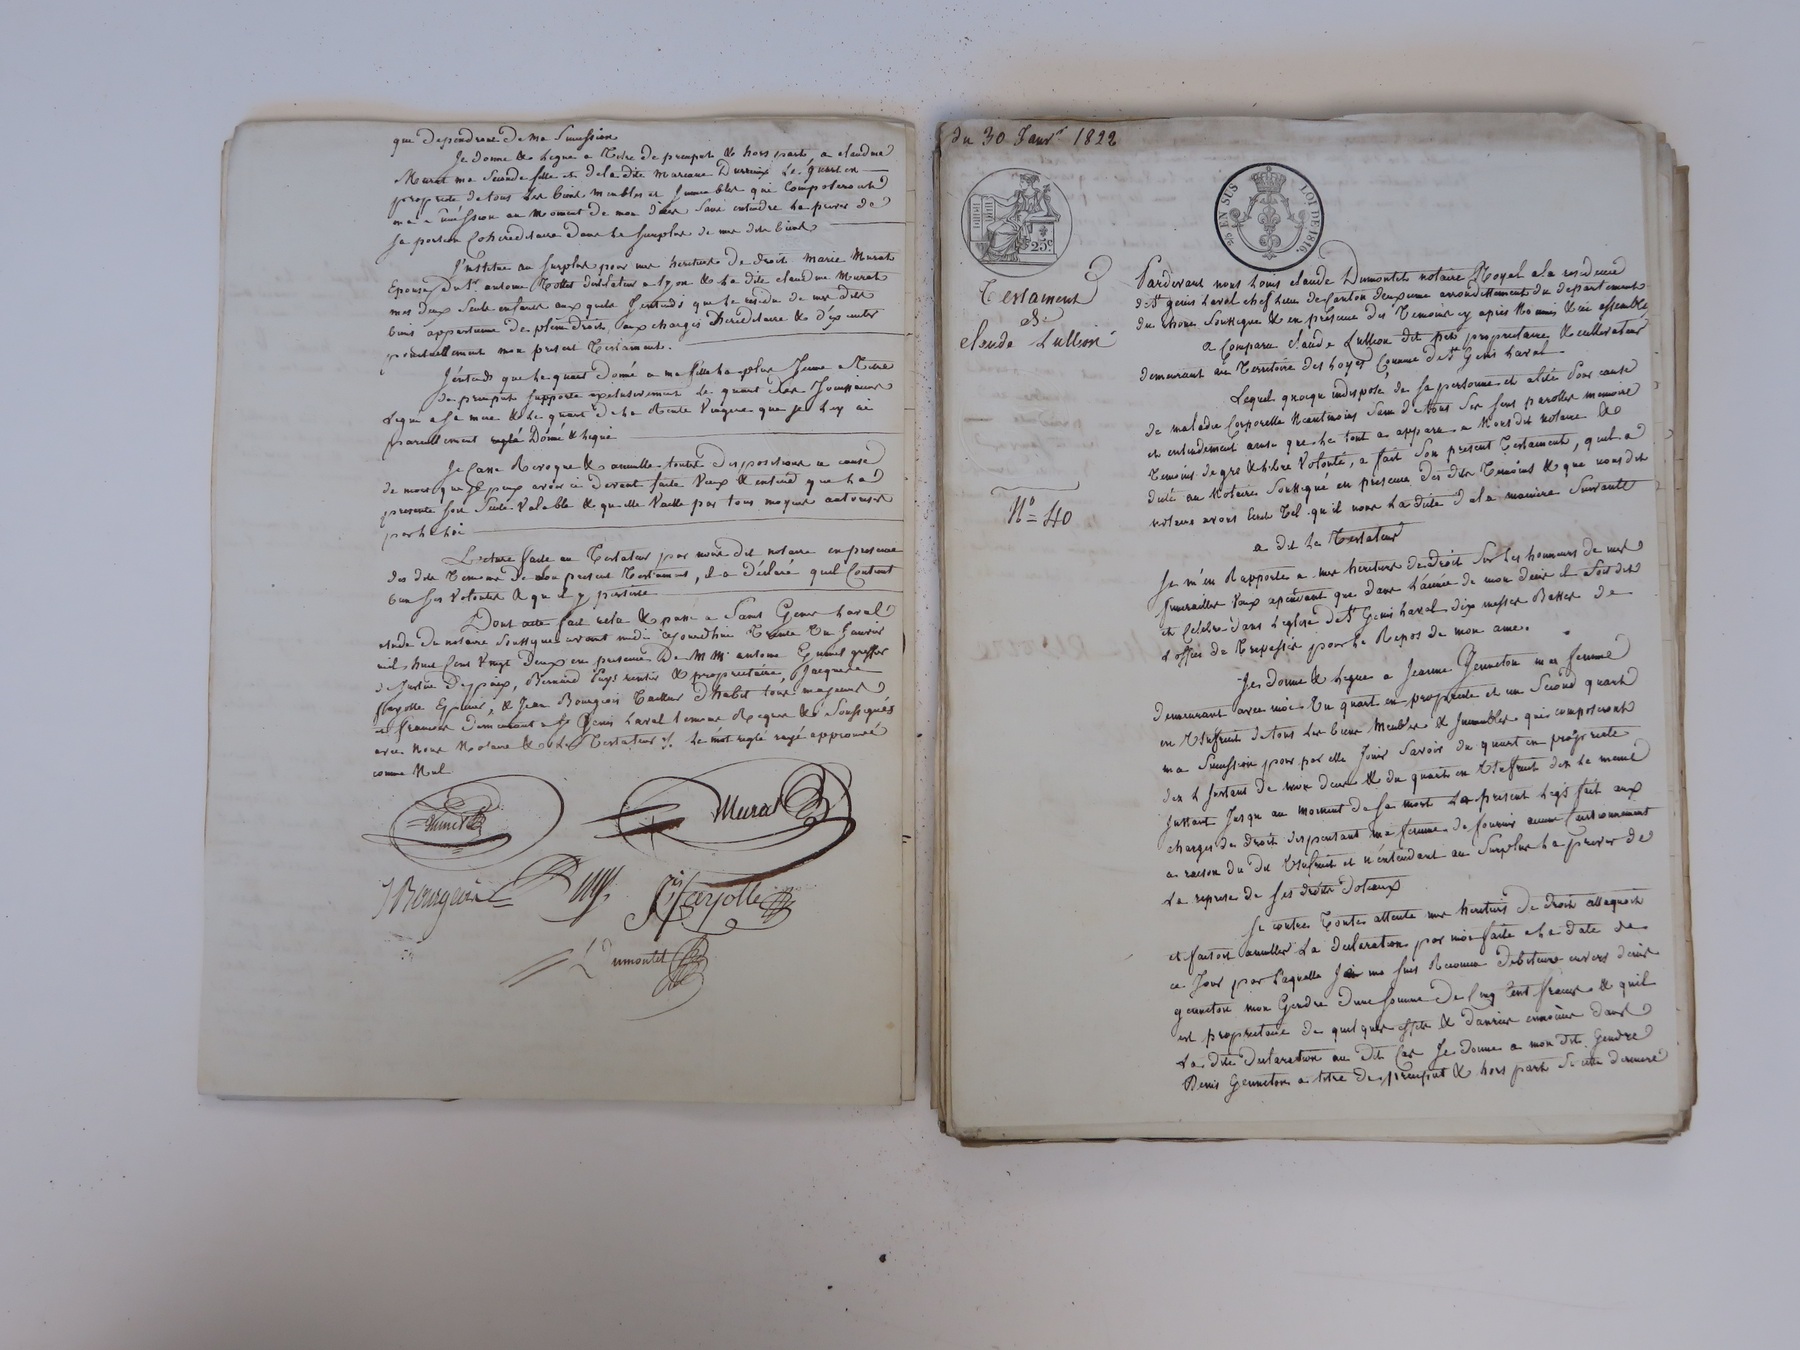 que dependront de ma Succession
Je donne & legue a Titre de preciput & hors part, a claudine
Murat ma Seconde fille et de la dite Mariane Le quart en
propriété de tous les biens meubles et Immeubles qui Composeront
ma succession au Moment de mon décès sans entendre la priver de
Sa portion Cohereditaire dans le Surplus de mes dits biens
J'institue au Surplus pour mes heritiers de droit Marie Murat
Epouse du Sr. antoine a lyon & la dite claudine Murat
mes deux Seuls enfants aux quels J'entends que le residu de mes dits
biens appartienne de plein droit, aux charges hereditaires & d'executer
ponctuellement mon present Testament.
J'entends que le quart donné a ma fille la plus Jeune a titre
de preciput Supporte exclusivement le quart des Jouissances
Legué a Sa mere & le quart de la Rente Viagere que je luy ai
pareillement reglé Donné & Legué
Je Casse Revoque & annulle toutes dispositions a cause
de mort que je peux avoir ci devant faite Veux & entend que la
presente Soit Seule Valable & quelle Vaille par tous moyens autorisés
par la loi
Lecture faite au Testateur par nous dit notaire en presence
des dits Temoins de Son present Testament, il a déclaré quil Contient
bien Ses Volontés & qu'il y persiste
Dont acte fait relu & passé a Saint Genis Laval
etude du notaire Soussigné avant midi cejourdhui Trente Un Janvier
mil huit Cent Vingt Deux en presence De M.M. antoine greffier
de Justice De paix, Bernard Puys rentier & proprietaire, Jacques
Fayolle Epicier, & Jean Bourgeois Tailleur d'habit tous majeurs
et francais demeurant a St Genis Laval temoins Requis & Soussignés
avec Nous Notaire & le Testateur ·/. Le mot reglé rayé approuvé
comme Nul
Murat
JBourgeois Puys Fayolle
Dumontet
du 30 Janvr 1822
25c
25c EN SUS LOI DE 1816
Testament
de
claude Lullion
No = 40
Pardevant nous Louis claude Dumontet notaire Royal a la residence
de St genis Laval chef lieu de Canton deuxieme arrondissement du departement
du rhone Soussigné & en presence des Temoins cy après Nommés & ici assemblés
a Comparu claude Lullion dit proprietaire & cultivateur
demeurant au Territoire des Comune de St Genis Laval
Lequel quoique indisposé de Sa personne et alité Pour cause
de maladie Corporelle Neantmoins Sain de tous Ses Sens paroles memoire
et entendement ainsi que le tout a apparu a Nous dit notaire &
Temoins de gré & libre Volonté, a fait Son present Testament, quil a
dicté au Notaire Soussigné en presence des dits Temoins & que nous dit
notaire avons Ecrit Tel qu'il nous La dicté de la maniere Suivante
a dit le Testateur
Je m'en Rapporte a mes heritiers de droit Sur les honneurs de mes
funerailles Veux cependant que dans L'année de mon décès il Soit dit
et Celebré dans L'eglise de St Genis Laval dix messes Basses de
L'office de Trepassés pour le Repos de mon ame.
Je donne & Legue a Jeanne Genneton ma femme
demeurant avec moi Un quart en propriété et un Second quart
en Usufruit de tous les biens Meubles & Immeubles qui composeront
ma Succession pour par elle Jouir Savoir du quart en propriété
des L'Instant de mon decès & du quart en Usufruit des le meme
Instant Jusqu'au moment de Sa mort Le present Legs fait aux
charges du droit dispensant Ma femme de fournir aucun Cautionnement
a raison du dit Usufruit et n'entendant au Surplus la priver de
La reprise de Ses droits dotaux
Si contre Toutes attente mes heritiers de droit attaquoit
et faisoit annuller La declaration par moi faite a la date de
ce Jour par laquelle Je me Suis Reconnu debiteur envers denis
genneton mon Gendre d'une Somme De Cinq Cent francs & quil
est proprietaire de quelques effets & denrées enoncées dans
La dite declaration au dit Cas Je donne a mon dit Gendre
Denis Genneton a titre de preciput & hors part Si cette derniere